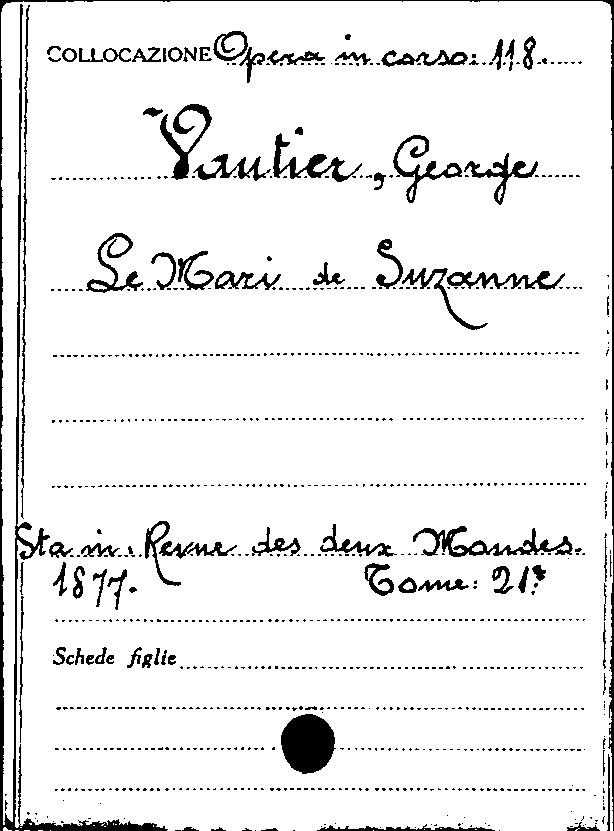 COLLOCAZIONE Opera in corso: 118.
Vautier, George
Le Mari de Suzanne
Sta in. Revue des deux Mondes.
1877. Tome: 21º
Schede figlie